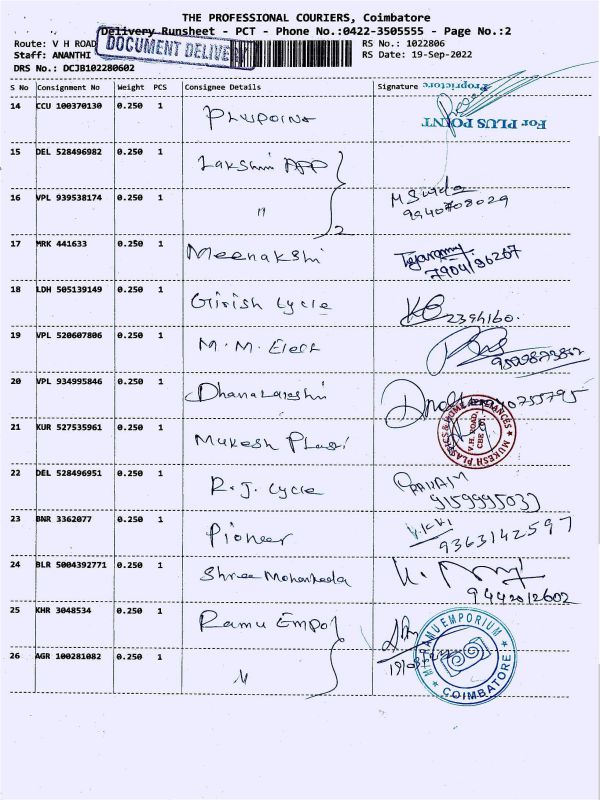 THE PROFESSIONAL COURIERS, Coimbatore
Delivery Runsheet - PCT - Phone No.:0422-3505555 - Page No.:2
Route: V H ROAD
DOCUMENT DELIVE
RS No.: 1022806
Staff: ANANTHI
RS Date: 19-Sep-2022
DRS No.: DCJB102280602
S No Consignment No Weight PCS Consignee Details Signature
For PLUS POINT
Proprietors
14 CCU 100370130 0.250 1 PLUSPOINT
15 DEL 528496982 0.250 1 Lakshmi APP
16 VPL 939538174 0.250 1 " 2
17 MRK 441633 0.250 1 Meenakshi
18 LDH 505139149 0.250 1 Girish Cycle 2394160.
19 VPL 520607806 0.250 1 M. M. Elect
20 VPL 934995846 0.250 1 Dhanalakshmi
21 KUR 527535961 0.250 1 Mukesh Plasi
MUKESH PLASTICS & HOME APPLIANCES
V.H. ROAD,
CBE
22 DEL 528496951 0.250 1 R. J. Cycle
9159995033
23 BNR 3362077 0.250 1 Pioneer
9363142597
24 BLR 5004392771 0.250 1 Shree Mohankeda
9442012602
25 KHR 3048534 0.250 1 Ramu Empo
RAMU EMPORIUM
COIMBATORE
26 AGR 100281082 0.250 1 "